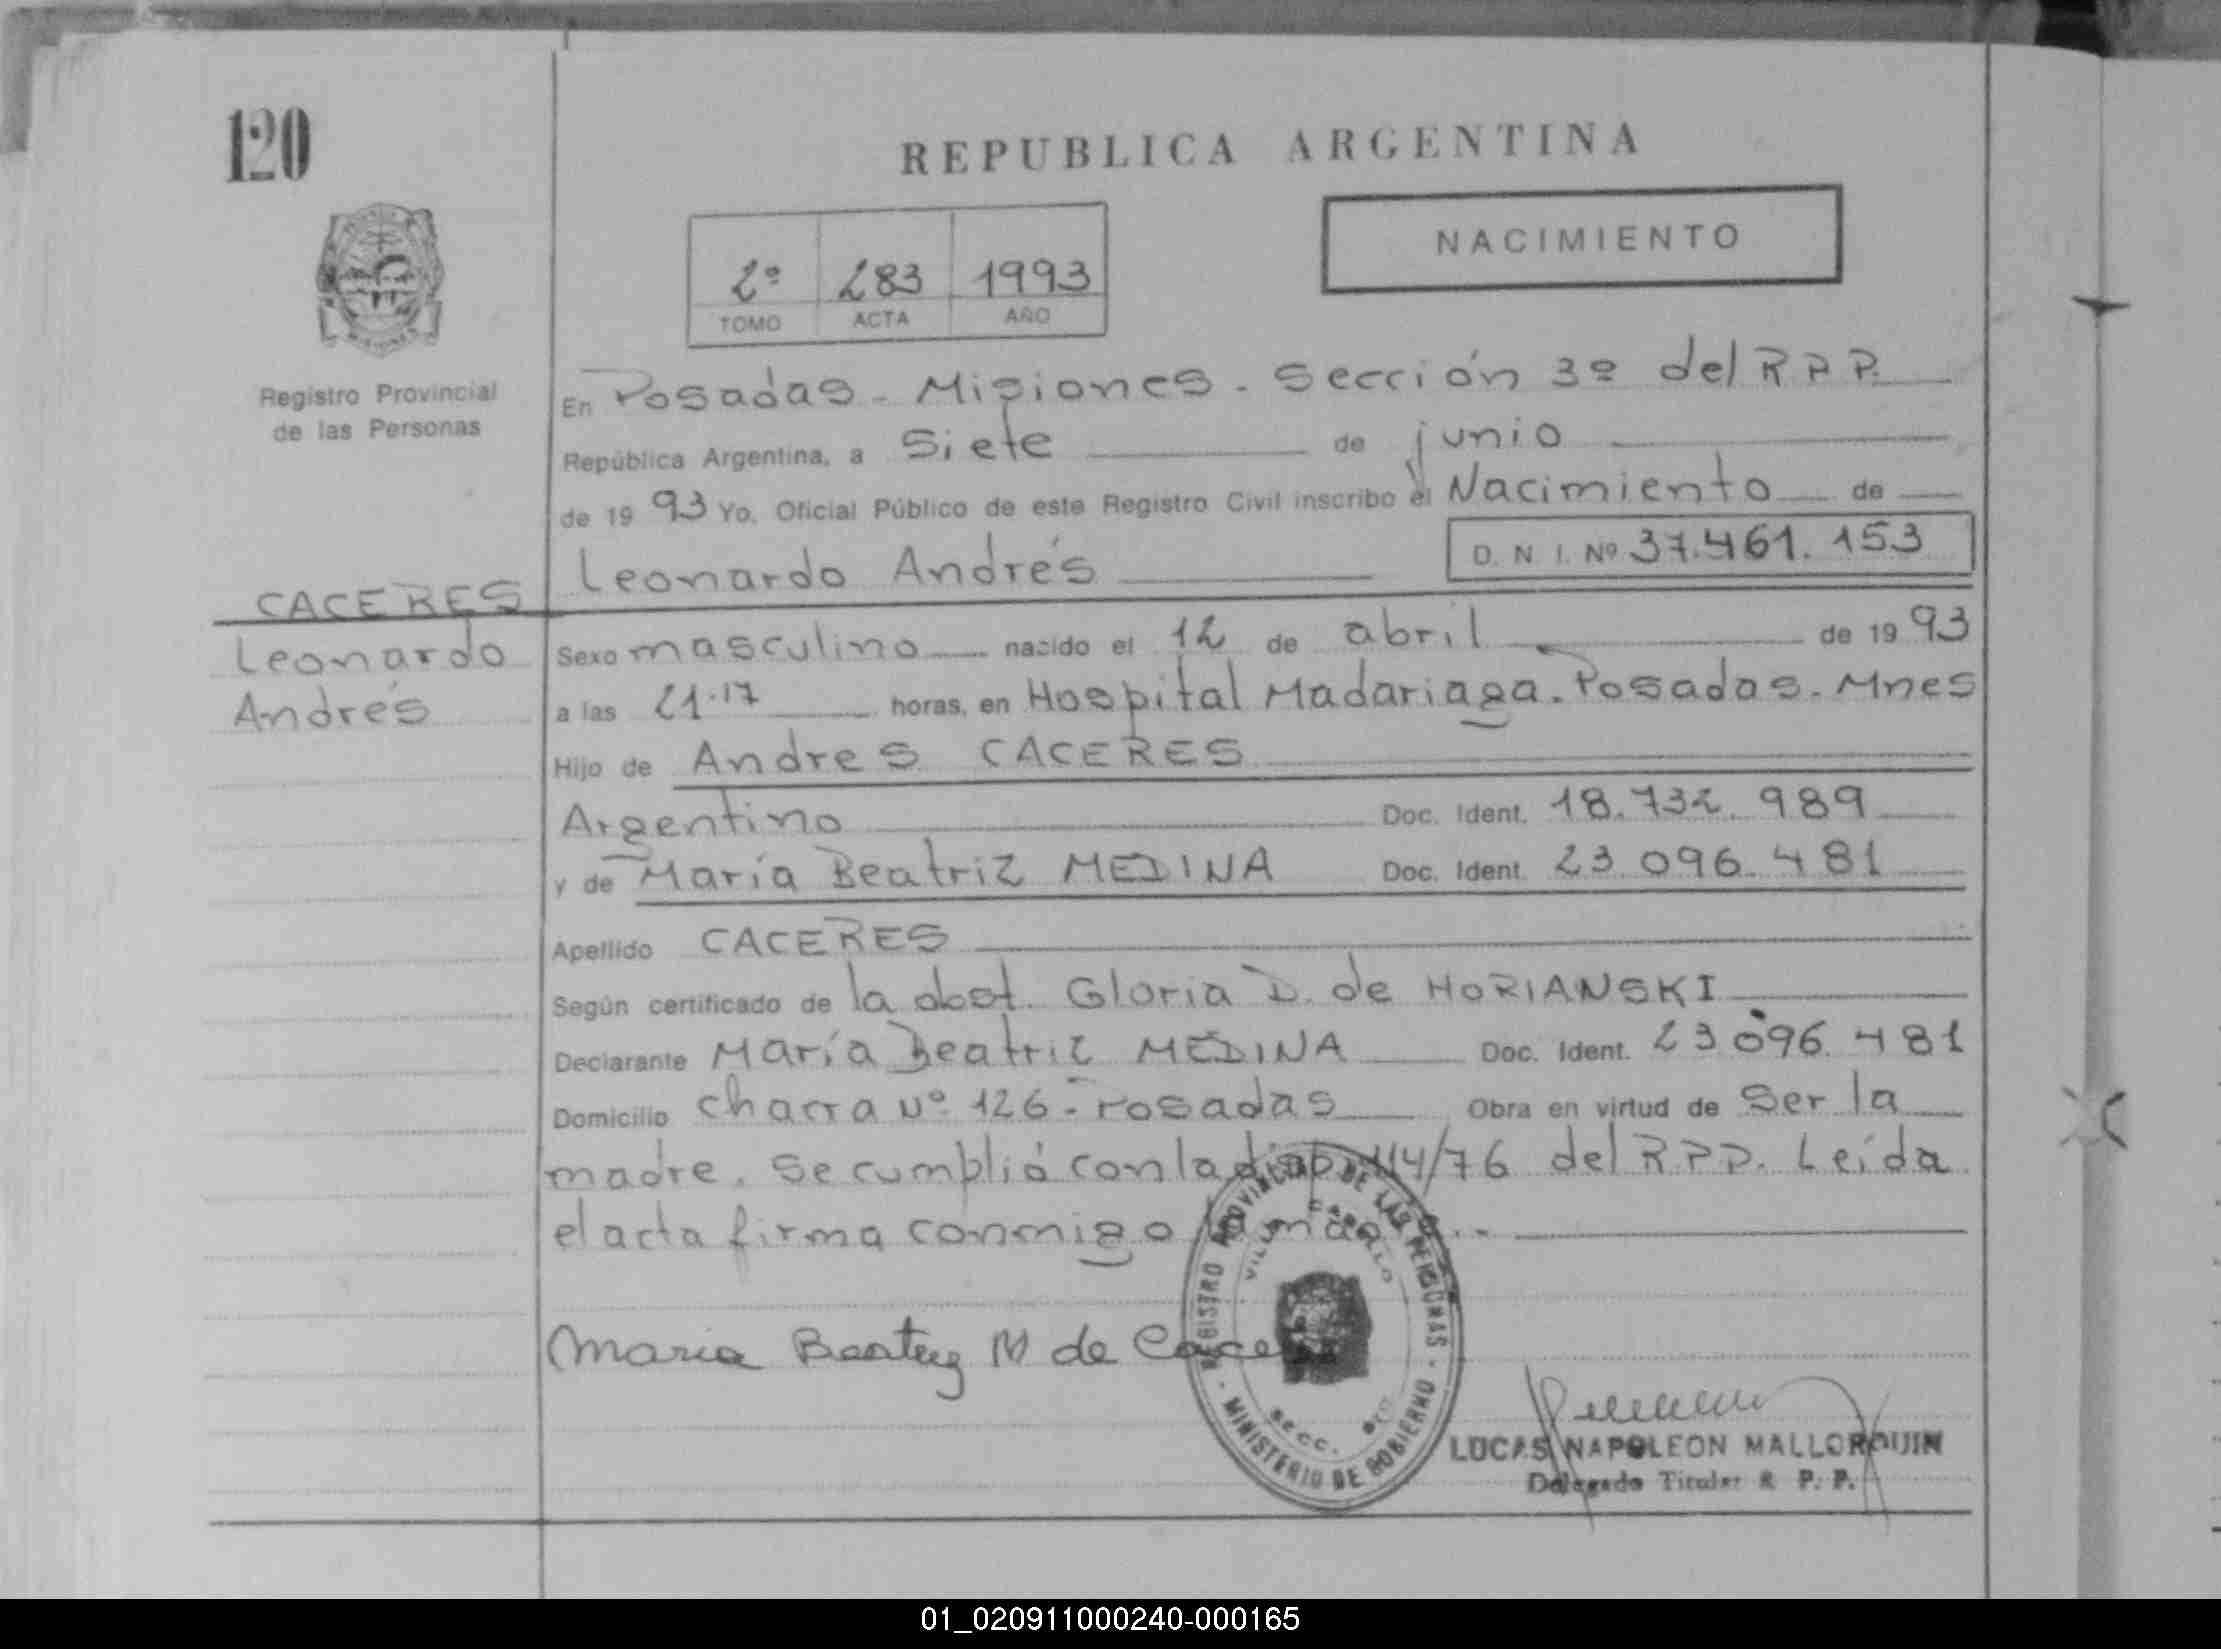 120
REPUBLICA ARGENTINA
NACIMIENTO
2º 283 1993
TOMO ACTA AÑO
Registro Provincial
de las Personas
En Posadas - Misiones - Sección 3º del R P P.
República Argentina, a Siete de junio
de 19 93 Yo, Oficial Público de este Registro Civil inscribo el Nacimiento de
Leonardo Andrés D. N. I. Nº 37.461.153
CACERES
Leonardo
Andrés
Sexo masculino nacido el 12 de abril de 19 93
a las 21.17 horas, en Hospital Madariaga. Posadas. Mnes
Hijo de Andres CACERES
Argentino Doc. Ident. 18.732.989
y de María Beatriz MEDINA Doc. Ident. 23.096.481
Apellido CACERES
Según certificado de la obst. Gloria D. de HORIANSKI
Declarante María Beatriz MEDINA Doc. Ident. 23 096.481
Domicilio Chacra Nº 126 - Posadas Obra en virtud de Ser la
madre. Se cumplió con la disp. 114/76 del R.P.P. Leída
el acta firma conmigo la
Maria Beatriz M de
REGISTRO PROVINCIAL DE LAS PERSONAS
VILLA
SECC.
MINISTERIO DE GOBIERNO
LUCAS NAPOLEON MALLORQUIN
Delegado Titular R. P. P.
01_020911000240-000165